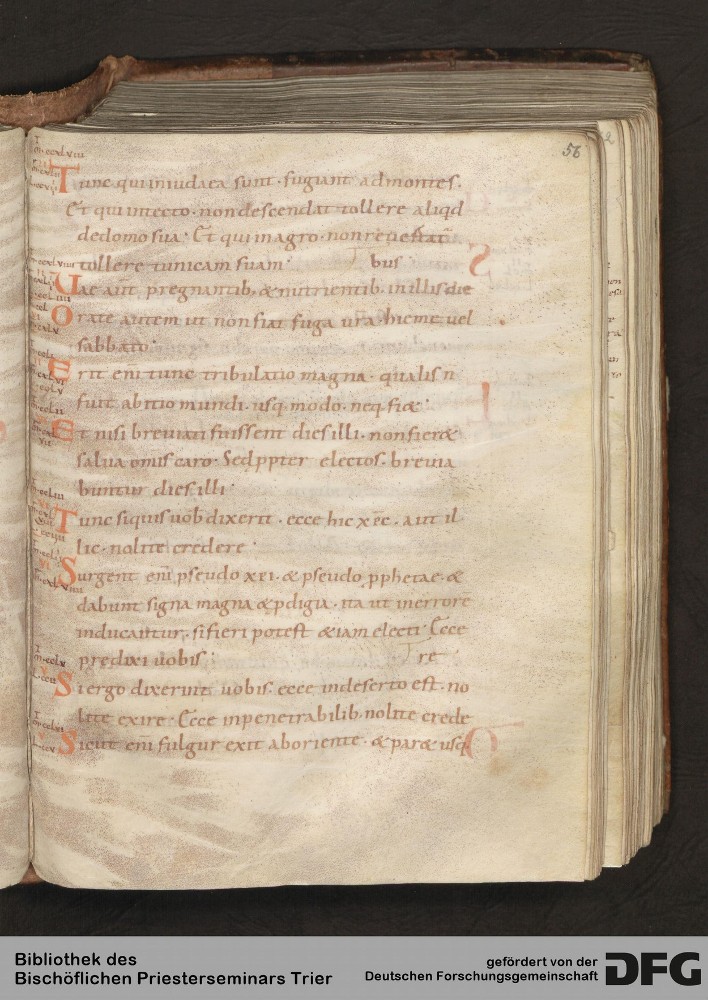 56
Tunc qui iniudaea sunt · fugiant admontes ·
Et qui intecto · non descendat tollere aliqd
dedomo sua · Et qui in agro · non reuertat̄
tollere tunicam suam · bus
Uae aut̄ pregnantib · & nutrientib · in illis die
Orate autem ut non fiat fuga ur̄a · hieme uel
sabbato ·
Erit eni tunc tribulatio magna · qualis n̄
fuit ab itio mundi · usq; modo · neq; fi&
Et nisi breuiati fuissent dies illi · non fier&
salua om̄is caro · Sed ppter electos · breuia
buntur dies illi ·
Tunc siquis uob dixerit · ecce hic xp̄c · aut il
lic · nolite credere ·
Surgent eni pseudo xpi · & pseudo pphetae · &
dabunt signa magna & pdigia · ita ut in errore
inducantur · si fieri potest &iam electi · Ecce
predixi uobis · re
Si ergo dixerint uobis · ecce in deserto est · no
lite exire · Ecce in penetrabilib · nolite crede
Sicut eni fulgur exit ab oriente · & par& usq;
Bibliothek des
Bischöflichen Priesterseminars Trier
gefördert von der
Deutschen Forschungsgemeinschaft
DFG